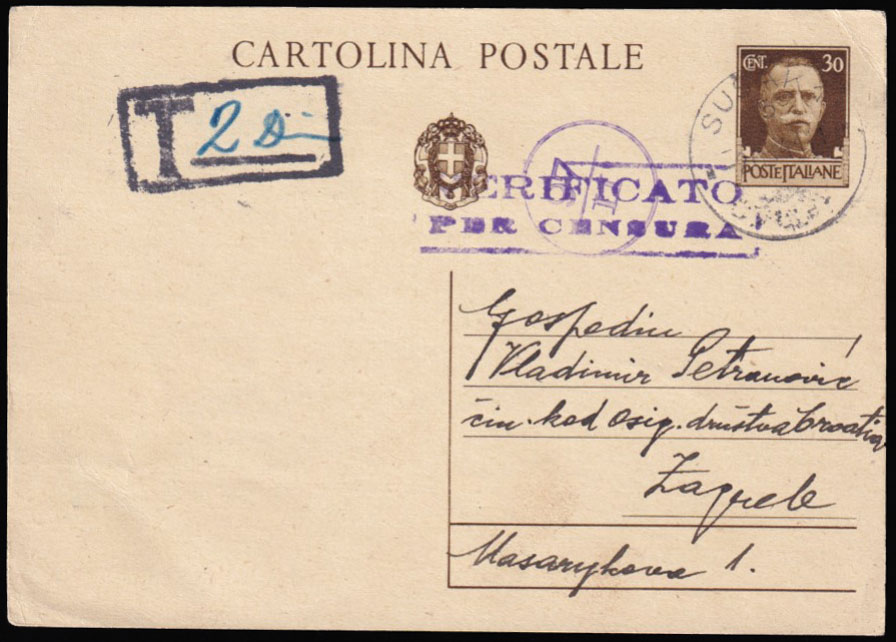 CARTOLINA POSTALE
CENT. 30
POSTE ITALIANE
T 2 Din
VERIFICATO
PER CENSURA
Gospodin
Vladimir Petranović
čin. kod osig. društva Croatia
Zagreb
Masarykova 1.